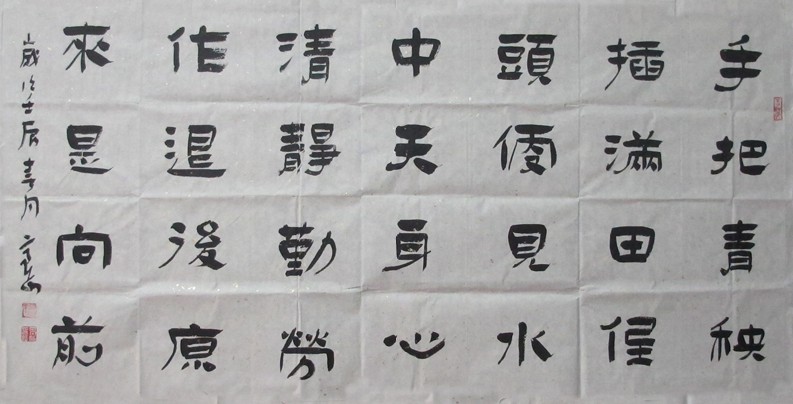 手把青秧
插滿田低
頭便見水
中天身心
清靜勤勞
作退後原
來是向前
歲次壬辰春月